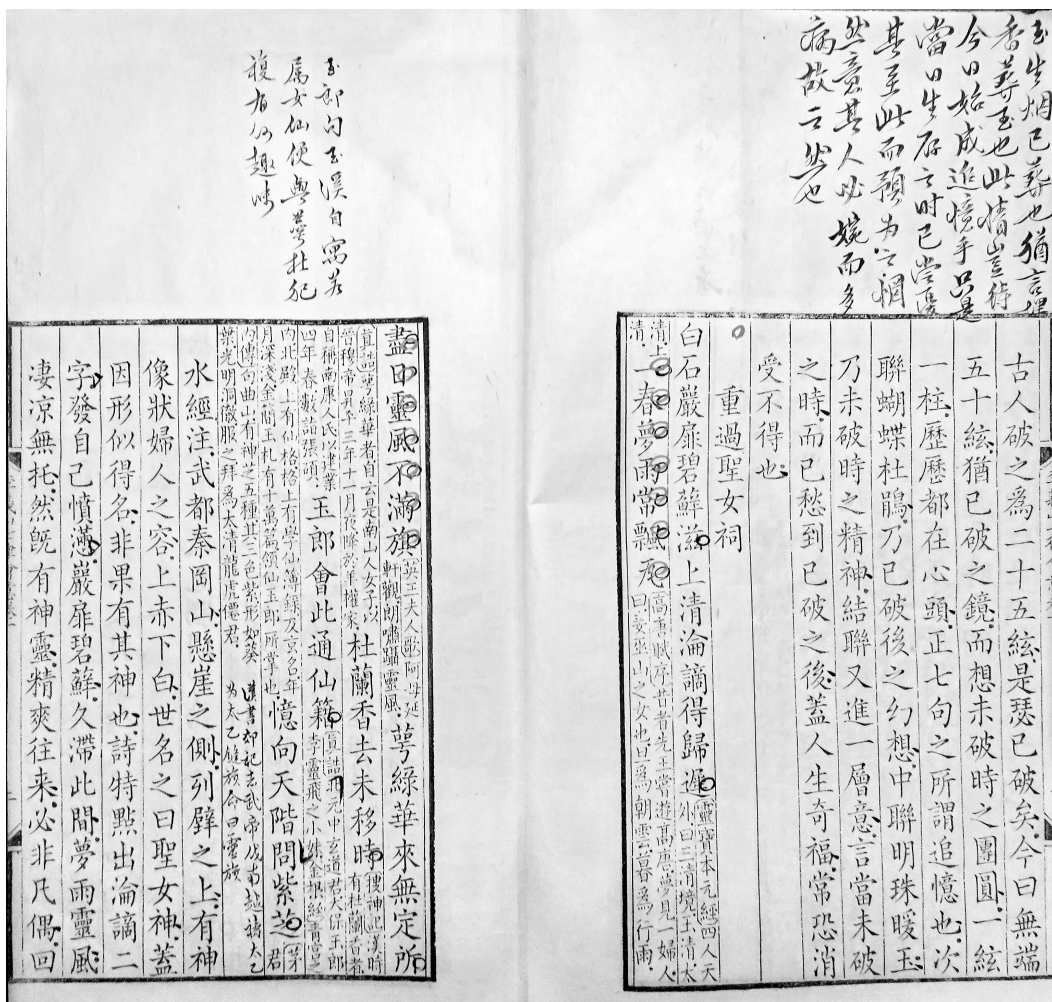 玉生烟已葬也猶言埋
香葬玉也此情豈待
今日始成追憶乎只是
當日生存之時已嘗憂
其至此而預為之惘
然意其人必婉而多
病故云然也
古人破之為二十五絃是瑟已破矣今曰無端
五十絃猶已破之鏡而想未破時之團圓一絃
一柱歷歷都在心頭正七句之所謂追憶也次
聯蝴蝶杜鵑乃已破後之幻想中聯明珠暖玉
乃未破時之精神結聯又進一層意言當未破
之時而已愁到已破之後蓋人生奇福常恐消
受不得也
重過聖女祠
白石巖扉碧蘚滋上清淪謫得歸遲靈寶本元經四人天
外曰三清境玉清太
清上
清一春夢雨常飄瓦高唐賦序昔者先王常遊高唐夢見一婦人
曰妾巫山之女也旦為朝雲暮為行雨
玉郎句玉溪自寓若
屬女仙便與萼杜犯
複有何趣味
盡日靈風不滿旗英王夫人歌阿母延
軒觀朗嘯躡靈風萼綠華來無定所
真誥萼綠華者自云是南山人女子以
晉穆帝昇平三年十一月夜降於羊權家杜蘭香去未移時搜神記漢時
有杜蘭香者
自稱南康人氏以建業
四年春數詣張碩玉郎會此通仙籍真誥
李靈飛之小妹金根經青宮之
内北殿上有仙格格上有學仙簿錄及玄名年
月深淺金簡玉札有十萬篇領仙玉郎所掌也憶向天階問紫芝茅
君
内傳句曲山有神芝五種其三色紫形如葵
葉光明洞徹服之拜為太清龍虎僊君
漢書郊祀志武帝伐南越禱太乙
為太乙鏠旗命曰靈旗
水經注武都秦岡山懸崖之側列壁之上有神
像狀婦人之容上赤下白世名之曰聖女神蓋
因形似得名非果有其神也詩特點出淪謫二
字發自己憤懣巖扉碧蘚久滯此間夢雨靈風
凄凉無托然旣有神靈精爽往来必非凡偶回